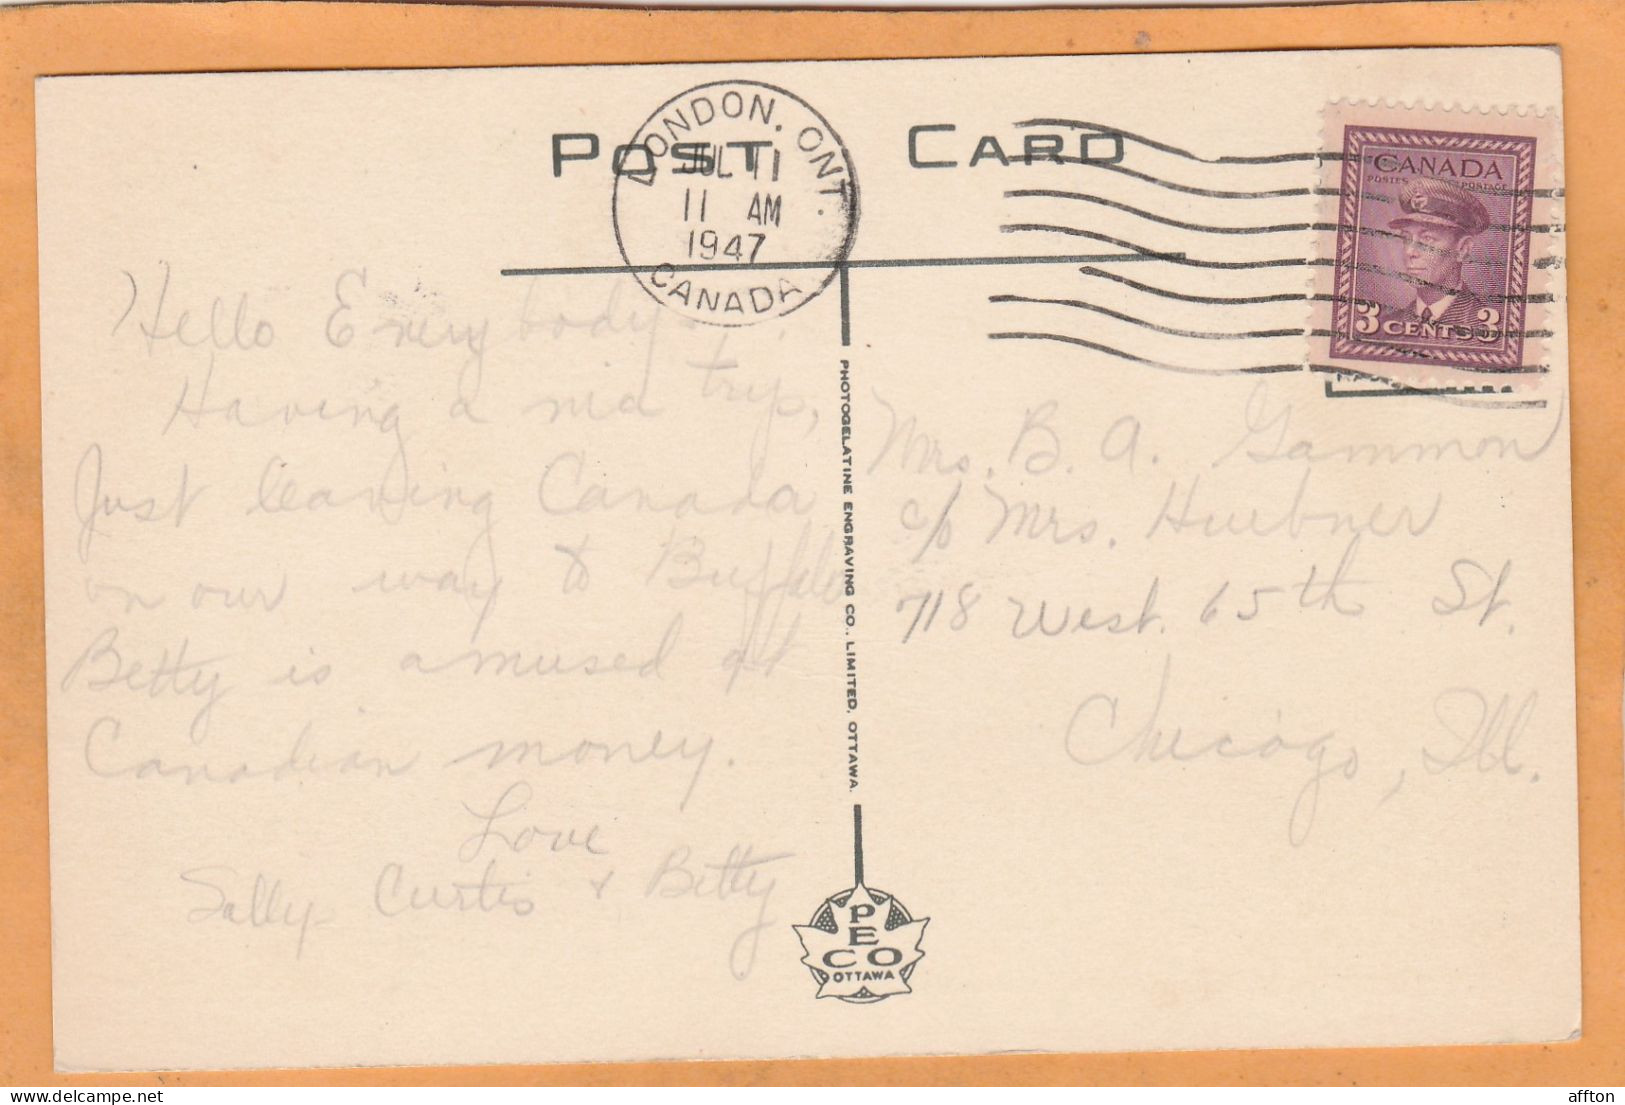 POST CARD
LONDON, ONT.
JUL 11
11 AM
1947
CANADA
CANADA
POSTES POSTAGE
3 CENTS 3
Hello Everybody.
Having a nice trip,
Just leaving Canada
on our way to Buffalo
Betty is amused at
Canadian money.
Love
Sally Curtis & Betty
PHOTOGELATINE ENGRAVING CO., LIMITED, OTTAWA.
Mrs. B. A. Gammon
c/o Mrs. Huebner
718 West 65th St.
Chicago, Ill.
PECO
OTTAWA
affton